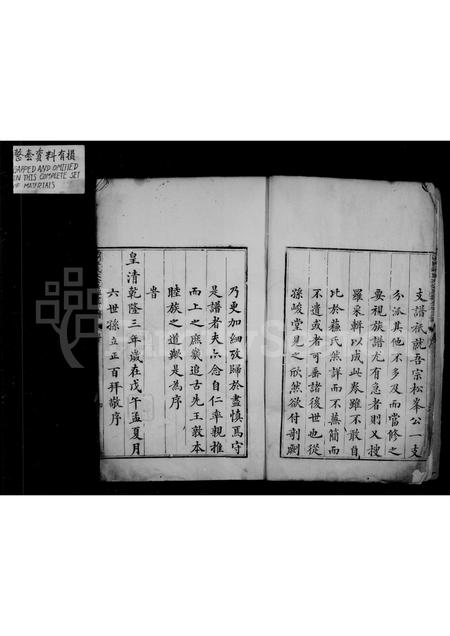 整套資料有損
GAPPED AND OMITTED
IN THIS COMPLETE SET
OF MATERIALS
支譜祇就吾宗松峯公一支
分派其他不多及而當修之
要視族譜尤有急者則又搜
羅采輯以成此卷雖不敢自
比於蘇氏然詳而不蕪簡而
不遺或者可垂諸後世也從
孫峻堂見之欣然欲付剞劂
乃更加細攷歸於盡慎焉守
是譜者夫亦念自仁率親推
而上之庶幾追古先王敦本
睦族之道歟是為序
旹
皇清乾隆三年歲在戊午孟夏月
六世孫立正百拜敬序